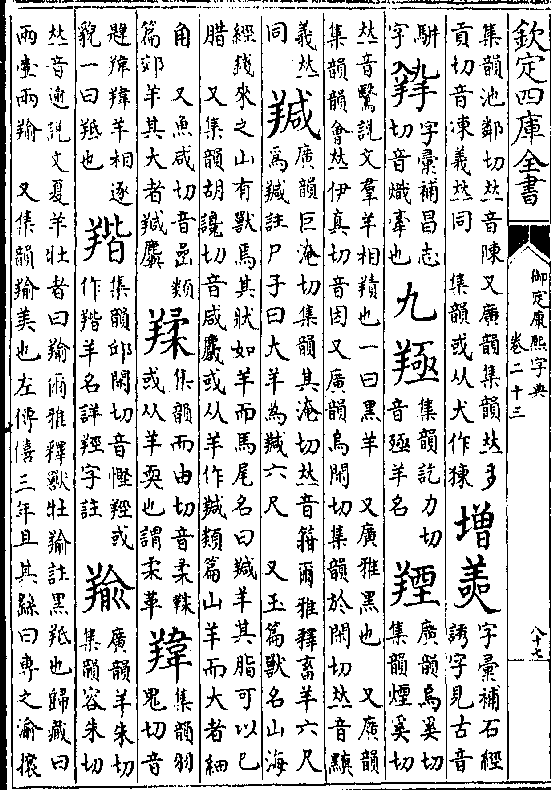 欽定四庫全書
御定康熙字典
卷二十三
八十七
集韻池鄰切𠀤音陳 又廣韻集韻𠀤多
貢切音凍義𠀤同 集韻或从犬作㹐
增
字彙補石經
誘字見古音
駢
字
字彙補昌志
切音熾牽也
九
集韻訖力切
音殛羊名
羥
廣韻烏奚切
集韻煙奚切
𠀤音鷖說文羣羊相羵也一曰黑羊 又廣雅黑也 又廣韻
集韻韻會𠀤伊真切音因又廣韻烏閑切集韻於閑切𠀤音黰
義𠀤
同
羬
廣韻巨淹切集韻其淹切𠀤音箝爾雅釋畜羊六尺
爲羬註尸子曰大羊為羬六尺 又玉篇獸名山海
經錢來之山有獸焉其狀如羊而馬尾名曰羬羊其脂可以已
腊 又集韻胡讒切音咸麙或从羊作羬類篇山羊而大者細
角 又魚咸切音嵒類
篇郊羊其大者羬麙
羊柔
集韻而由切音柔鞣
或从羊耎也謂柔革
羊韋
集韻羽
鬼切音
韙羊相逐
貌一曰羝也
羊皆
集韻邱閑切音慳羥或
作羊皆羊名詳羥字註
羭
廣韻羊朱切
集韻容朱切
𠀤音逾說文夏羊壯者曰羭爾雅釋獸牡羭註黑羝也歸藏曰
兩壷兩羭 又集韻羭美也左傳僖三年且其繇曰專之渝攘